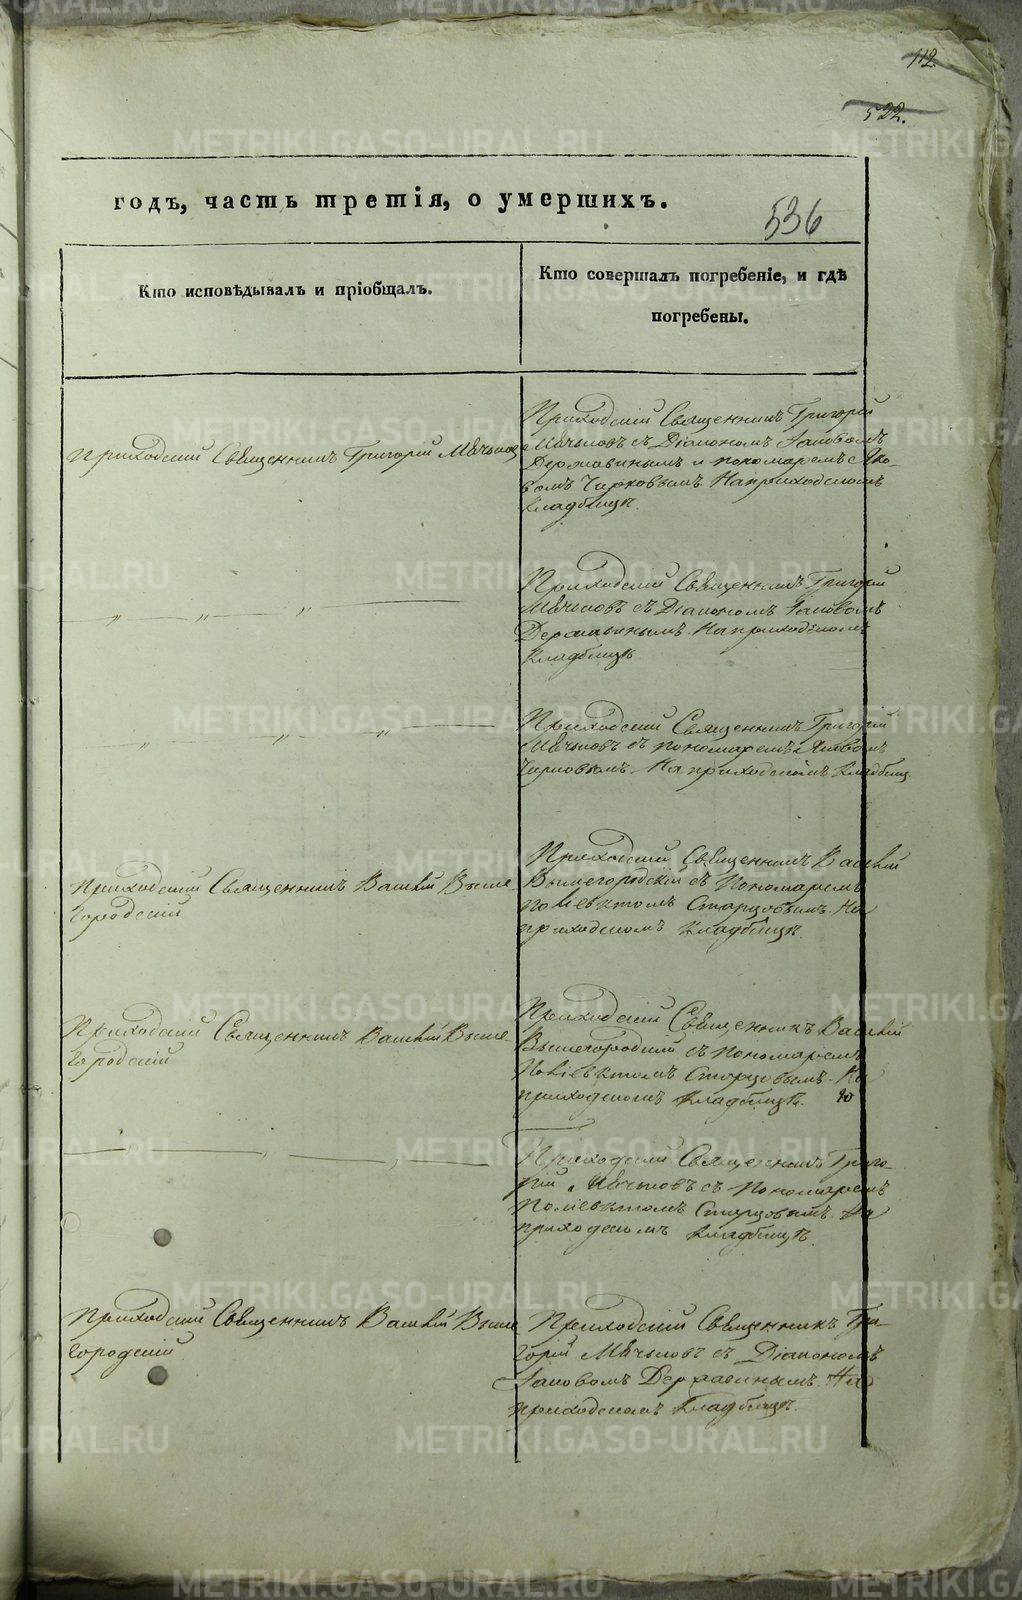 112.
522.
годъ, часть третія, о умершихъ.
536
Кто исповѣдывалъ и пріобщалъ.
Кто совершалъ погребеніе, и гдѣ
погребены.
Приходскій Священникъ Григорій
Приходскій Священникъ Григорій Мѣчьковъ
Мѣчьковъ съ Діакономъ Іаковомъ
Державинымъ и пономаремъ Яко-
вомъ На приходскомъ
Кладбищѣ.
Приходскій Священникъ Григорій
Мѣчьковъ съ Діакономъ Іаковомъ
Державинымъ. На приходскомъ
Кладбищѣ
Приходскій Священникъ Григорій
Мѣчьковъ съ пономаремъ Яковомъ
На приходскомъ Кладбищ.
Приходскій Священникъ Василій
Приходскій Священникъ Василій Выше-
городскій
Вышегородскій съ Пономаремъ
Поліевктомъ Старцовымъ. На
приходскомъ Кладбищѣ.
Приходскій Священникъ Василій
Приходскій Священникъ Василій Выше-
городскій
Вышегородскій съ пономаремъ
Поліевктомъ Старцовымъ. На
приходскомъ Кладбищѣ.
Приходскій Священникъ Григо-
рій Мѣчьковъ съ Пономаремъ
Поліевктомъ Старцовымъ. На
приходскомъ Кладбищѣ.
Приходскій Священникъ Василій Выше
городскій
Приходскій Священникъ Гри-
горій Мѣчьковъ съ Діакономъ
Іаковомъ Державинымъ. На
приходскомъ Кладбищѣ.
METRIKI.GASO-URAL.RU